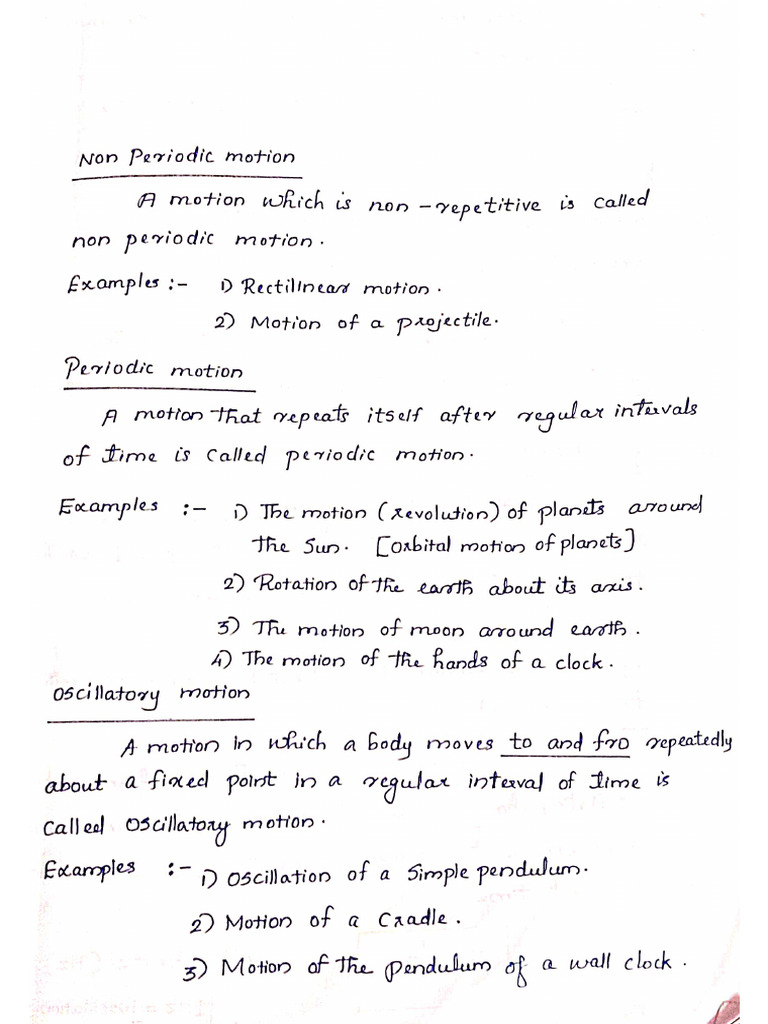 Non Periodic motion
A motion which is non-repetitive is called
non periodic motion.
Examples :- 1) Rectilinear motion.
2) Motion of a projectile.
Periodic motion
A motion that repeats itself after regular intervals
of time is called periodic motion.
Examples :- 1) The motion (revolution) of planets around
the Sun. [Orbital motion of planets]
2) Rotation of the earth about its axis.
3) The motion of moon around earth.
4) The motion of the hands of a clock.
Oscillatory motion
A motion in which a body moves to and fro repeatedly
about a fixed point in a regular interval of time is
called oscillatory motion.
Examples :- 1) Oscillation of a simple pendulum.
2) Motion of a Cradle.
3) Motion of the pendulum of a wall clock.